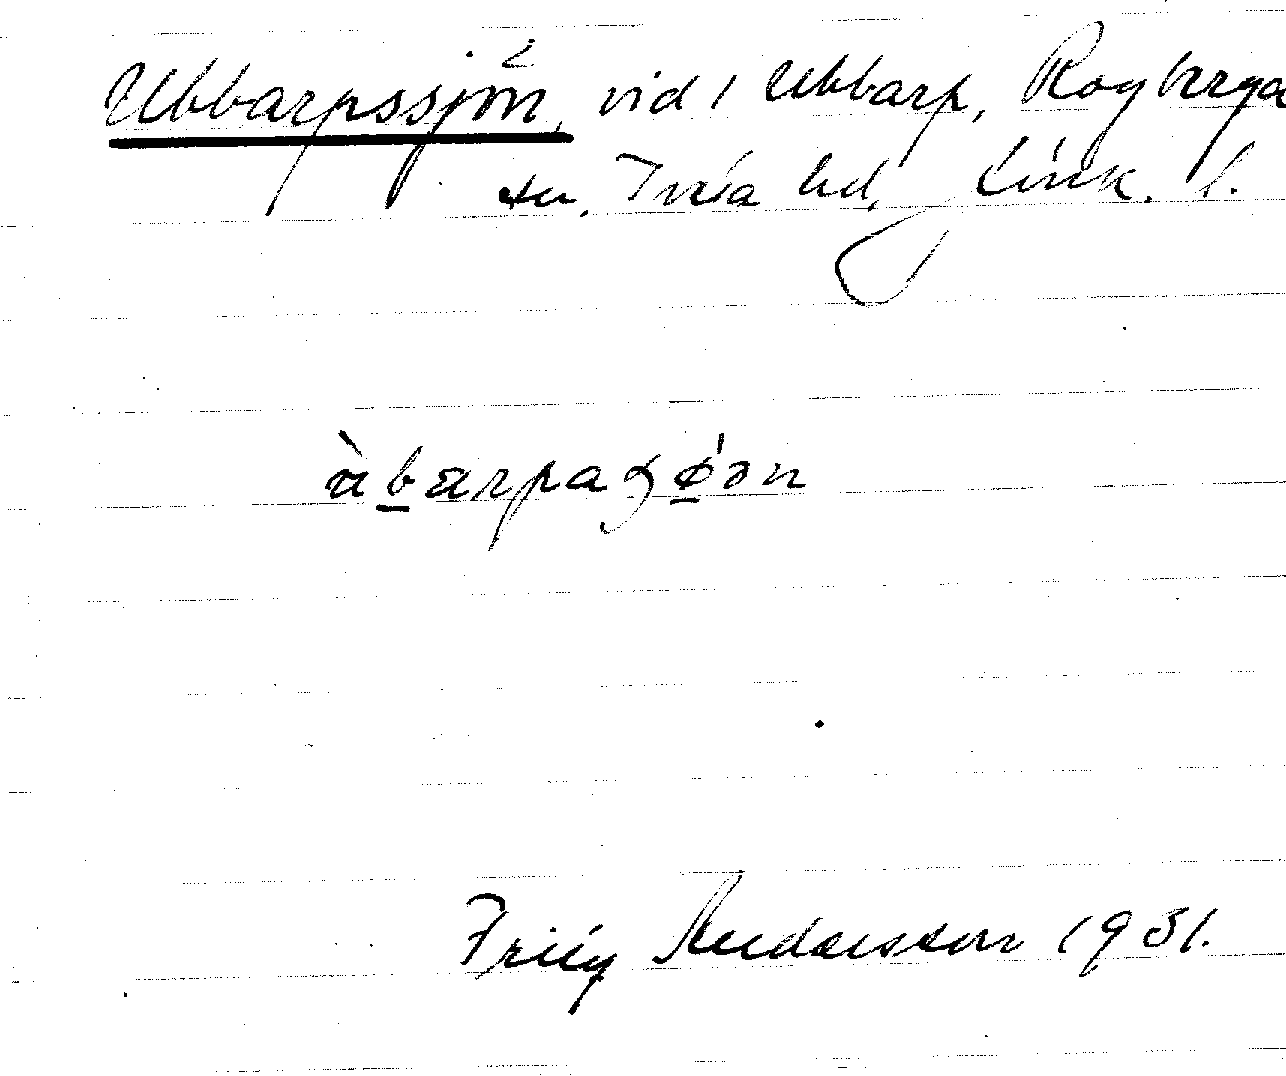 Ubbarpssjön, vid 1 Ubbarp, Rogberga
sn, Tveta hd, Jönk. l.
àbarpaʒǿən
Andersson 1931.